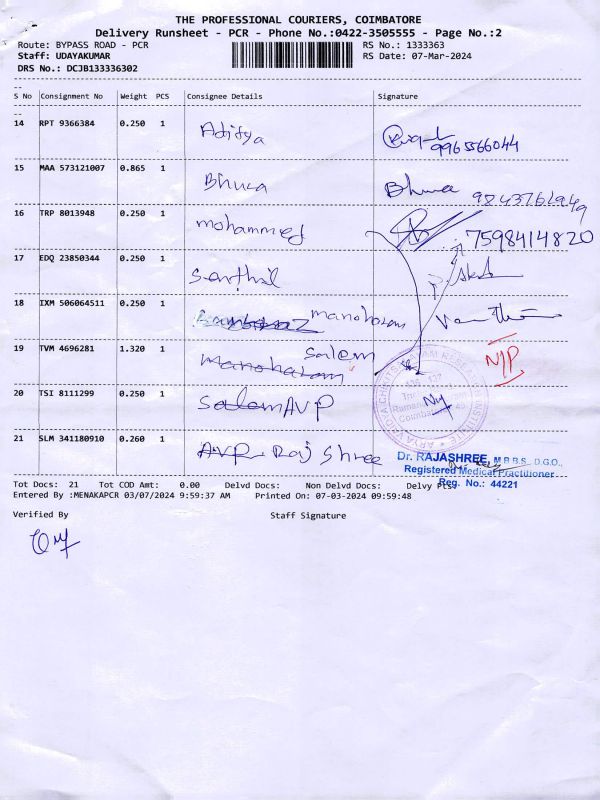 THE PROFESSIONAL COURIERS, COIMBATORE
Delivery Runsheet - PCR - Phone No.:0422-3505555 - Page No.:2
Route: BYPASS ROAD - PCR RS No.: 1333363
Staff: UDAYAKUMAR RS Date: 07-Mar-2024
DRS No.: DCJB133336302
S No Consignment No Weight PCS Consignee Details Signature
14 RPT 9366384 0.250 1 Aditya
9965566044
15 MAA 573121007 0.865 1 Bhuva Bhuva
16 TRP 8013948 0.250 1 mohammed
7598414820
17 EDQ 23850344 0.250 1 Senthil
18 IXM 506064511 0.250 1 manoharam
19 TVM 4696281 1.320 1 Manoharam Salem N/P
20 TSI 8111299 0.250 1 Salem AVP
21 SLM 341180910 0.260 1 AVP Raj Shree
Dr. RAJASHREE, M.B.B.S., D.G.O.,
Registered Medical Practitioner
Reg. No.: 44221
Tot Docs: 21 Tot COD Amt: 0.00 Delvd Docs: Non Delvd Docs: Delvy Pts:
Entered By :MENAKAPCR 03/07/2024 9:59:37 AM Printed On: 07-03-2024 09:59:48
Verified By Staff Signature